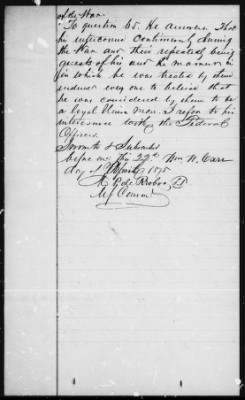 of the War.
To question 65. He answers. That
his intercourse continuously during
the War and their repeatedly being
guests of his and the manner in
in which he was treated by them
induced every one to believe that
he was considered by them to be
a loyal Union man. I refer to his
intercourse with the Federal
Officers.
Sworn to & Subscribed
before me this 22nd Wm W. Carr
day of 1875